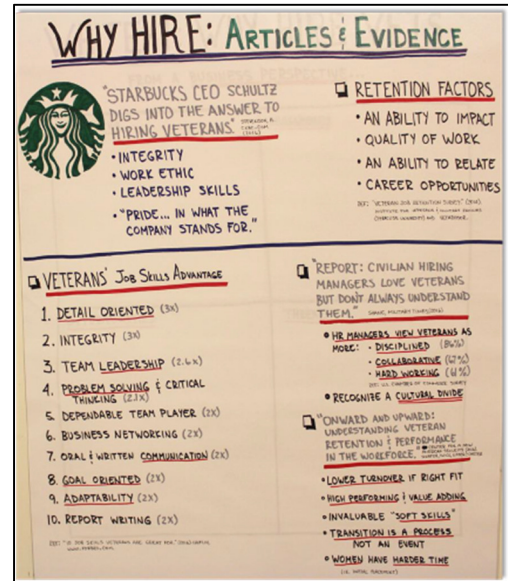 WHY HIRE: ARTICLES & EVIDENCE
"STARBUCKS CEO SCHULTZ
DIGS INTO THE ANSWER TO
HIRING VETERANS."
• INTEGRITY
• WORK ETHIC
• LEADERSHIP SKILLS
• "PRIDE... IN WHAT THE
COMPANY STANDS FOR."
RETENTION FACTORS
• AN ABILITY TO IMPACT
• QUALITY OF WORK
• AN ABILITY TO RELATE
• CAREER OPPORTUNITIES
VETERANS' JOB SKILLS ADVANTAGE
1. DETAIL ORIENTED (3X)
2. INTEGRITY (3X)
3. TEAM LEADERSHIP (2.6X)
4. PROBLEM SOLVING & CRITICAL
THINKING (2.1X)
5. DEPENDABLE TEAM PLAYER (2X)
6. BUSINESS NETWORKING (2X)
7. ORAL & WRITTEN COMMUNICATION (2X)
8. GOAL ORIENTED (2X)
9. ADAPTABILITY (2X)
10. REPORT WRITING (2X)
"REPORT: CIVILIAN HIRING
MANAGERS LOVE VETERANS
BUT DON'T ALWAYS UNDERSTAND
THEM."
• HR MANAGERS VIEW VETERANS AS
MORE: • DISCIPLINED (86%)
• COLLABORATIVE
• HARD WORKING
• RECOGNIZE A CULTURAL DIVIDE
"ONWARD AND UPWARD:
UNDERSTANDING VETERAN
RETENTION & PERFORMANCE
IN THE WORKFORCE.
• LOWER TURNOVER IF RIGHT FIT
• HIGH PERFORMING & VALUE ADDING
• INVALUABLE "SOFT SKILLS"
• TRANSITION IS A PROCESS
NOT AN EVENT
• WOMEN HAVE HARDER TIME